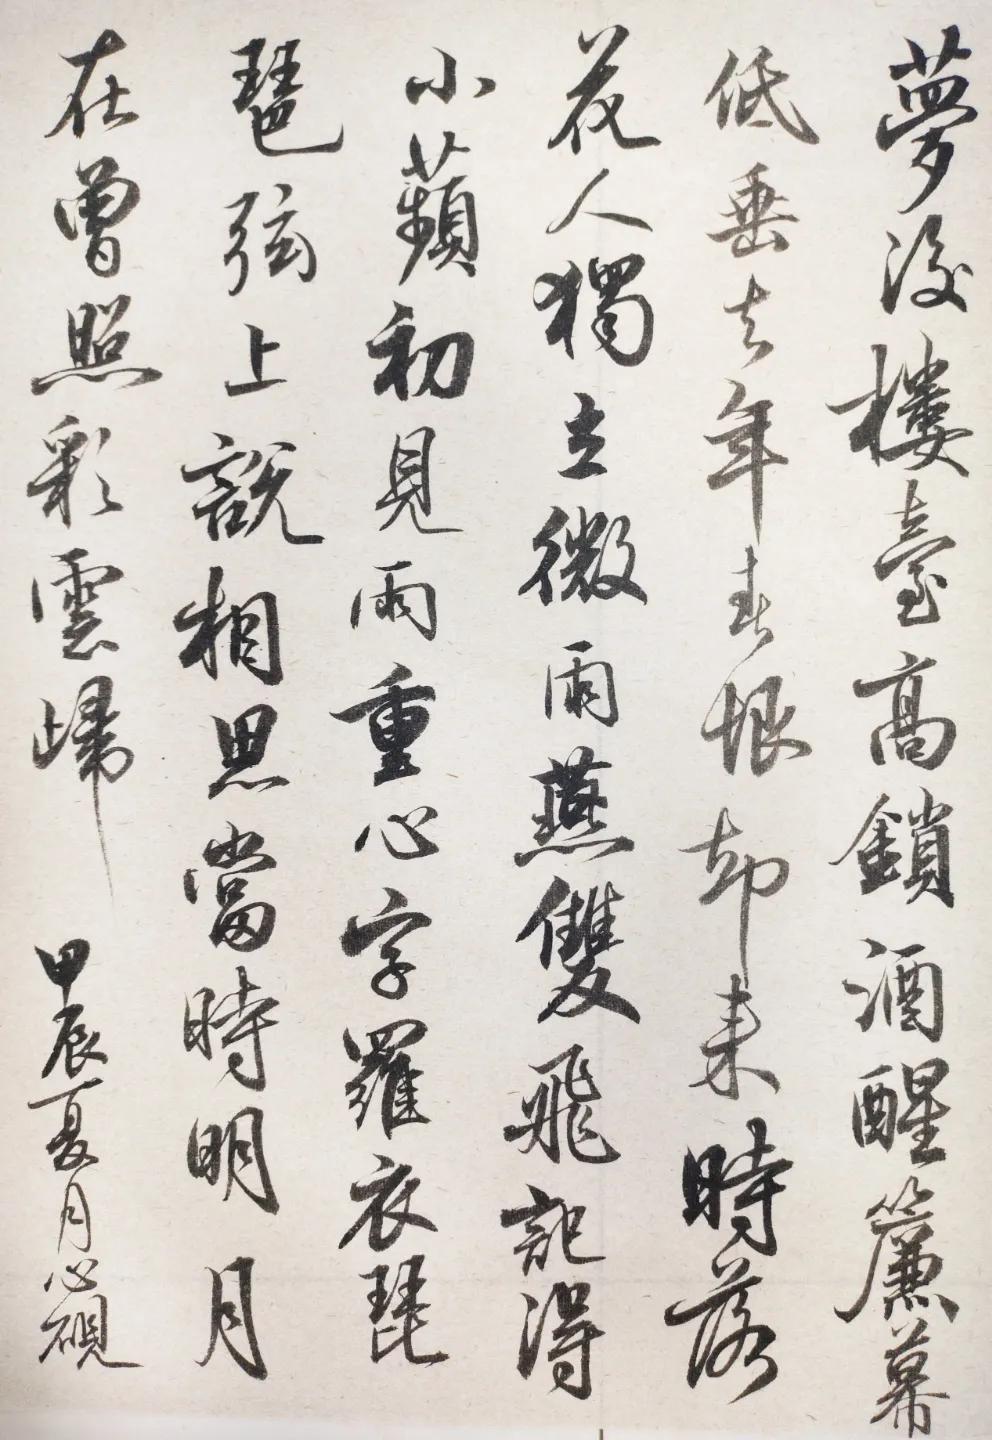 夢後樓臺高鎖酒醒簾幕
低垂去年春恨却來時落
花人獨立微雨燕雙飛記得
小蘋初見雨重心字羅衣琵
琶弦上說相思當時明月
在曾照彩雲歸
甲辰夏月心硯